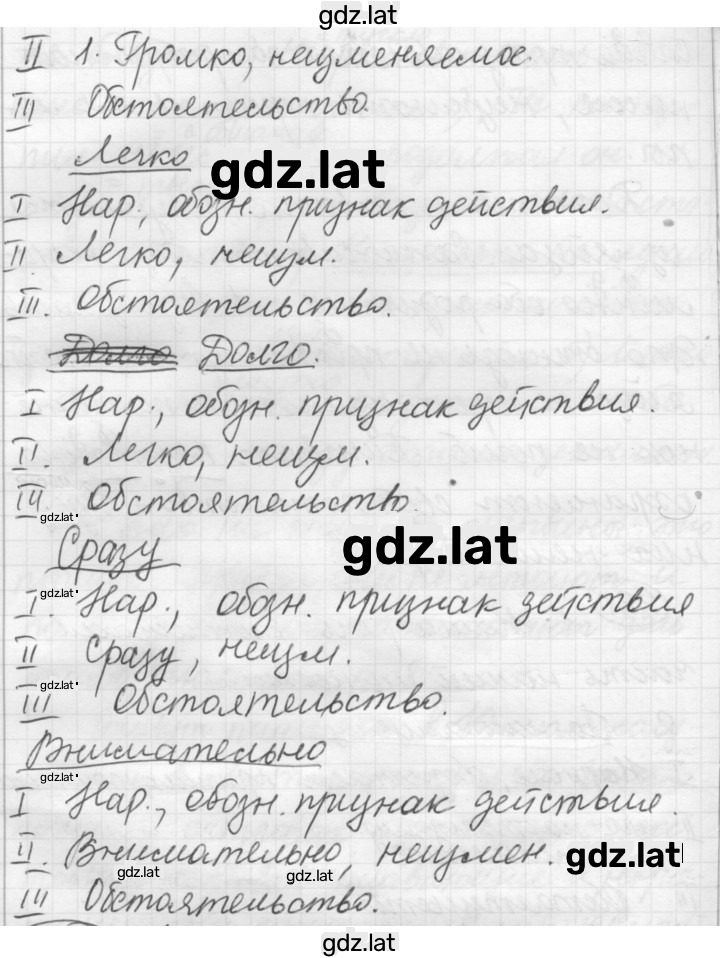 gdz.lat
II 1. Громко, неизменяемое.
III Обстоятельство
Легко
gdz.lat
I Нар., обозн. признак действия.
II Легко, неизм.
III. Обстоятельство.
Долго Долго.
I Нар., обозн. признак действия.
II. Легко, неизм.
III. Обстоятельство.
gdz.lat
Сразу
gdz.lat
gdz.lat
I Нар., обозн. признак действия
II Сразу, неизм.
gdz.lat
III Обстоятельство.
Внимательно
gdz.lat
I Нар., обозн. признак действия.
II. Внимательно, неизмен.
gdz.lat
gdz.lat
gdz.lat
III Обстоятельство.
gdz.lat